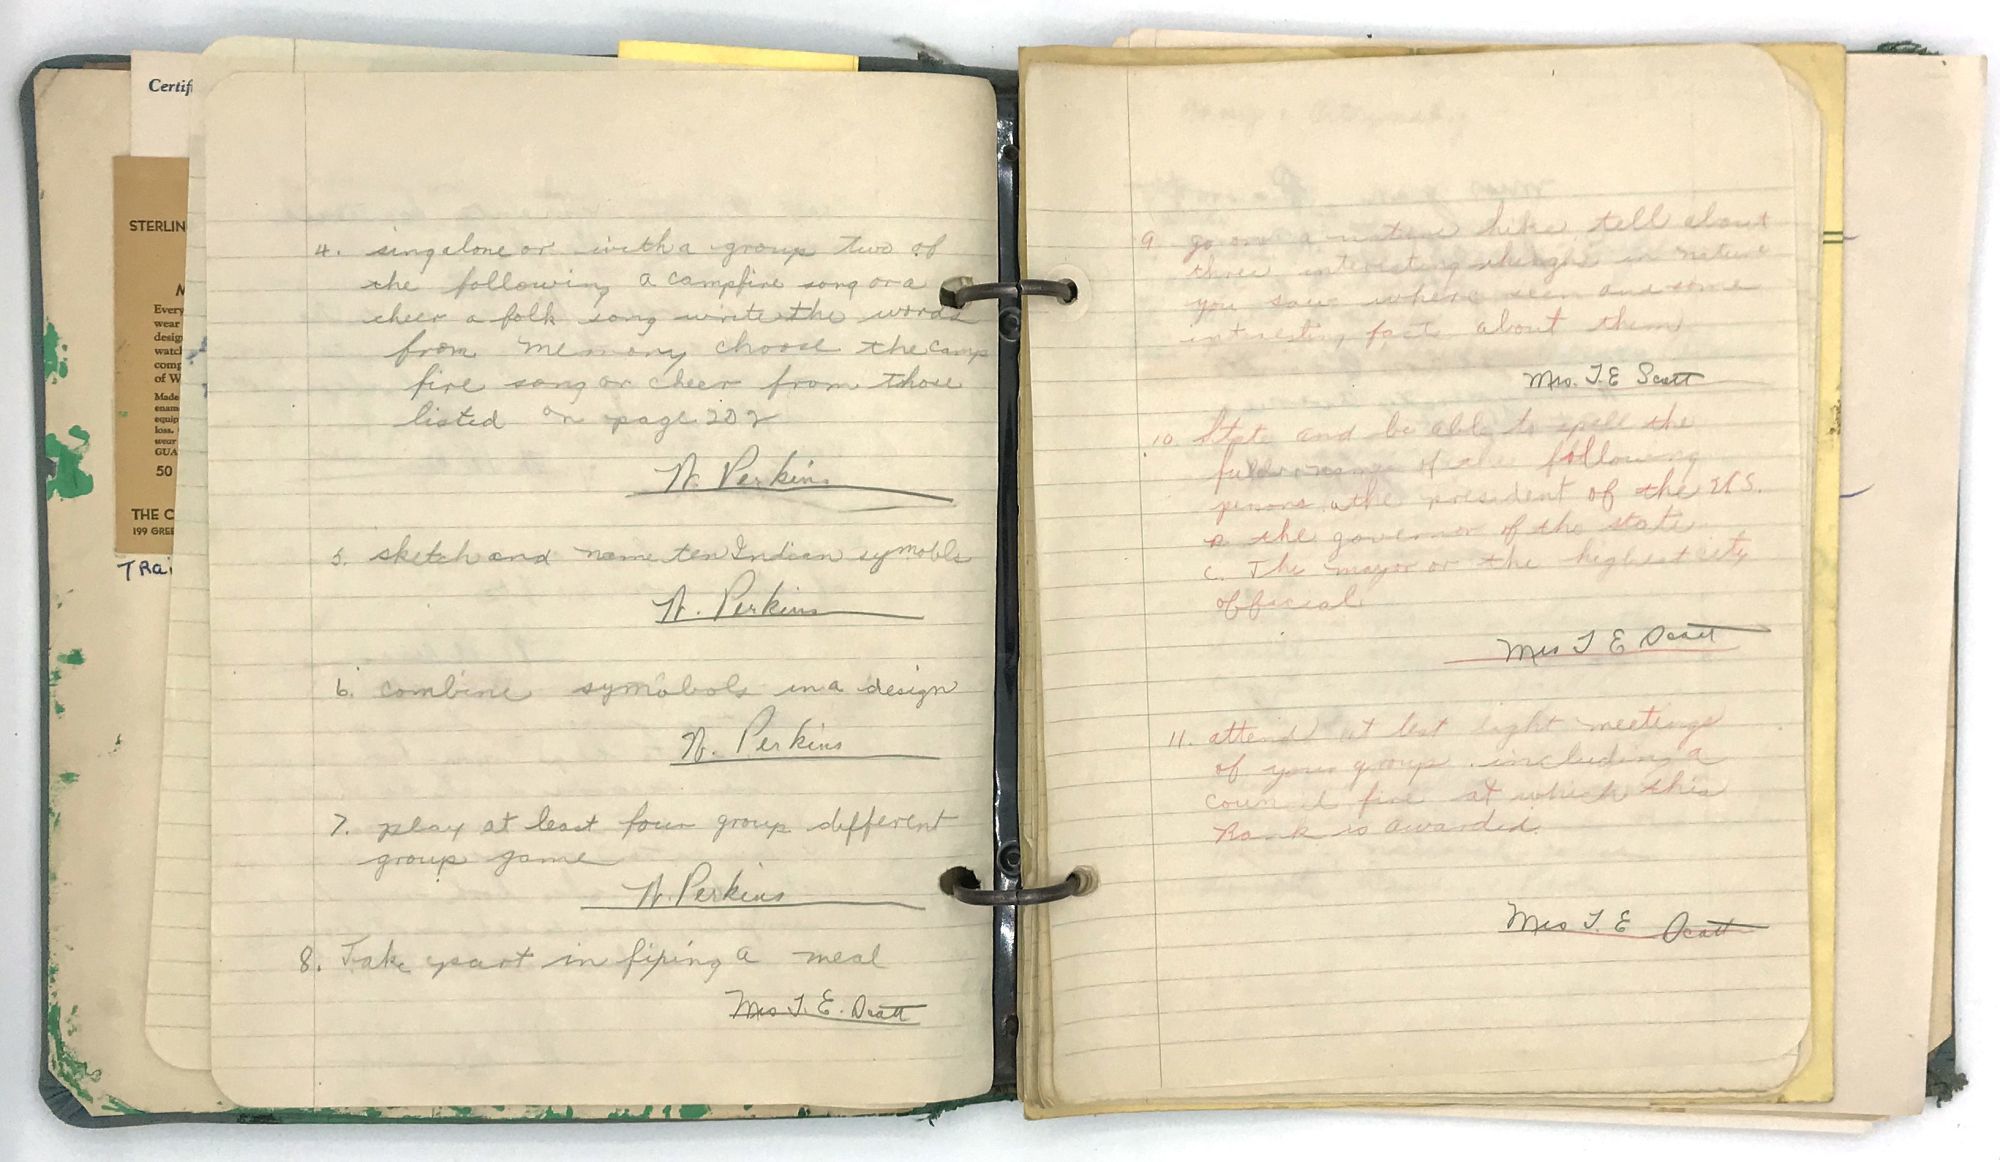 Certif
STERLIN
M
Every
wear
desig
watc
comp
of W
Made
enam
equip
loss.
wear
GUA
50
THE C
199 GREE
TRai
4. sing alone or with a group two of
the following a campfire song or a
cheer a folk song write the words
from memory choose the camp
fire song or cheer from those
listed on page 202
N. Perkins
5. sketch and name ten Indian symobls
N. Perkins
6. combine symobols in a design
N. Perkins
7. play at least four group different
group game
N. Perkins
8. Take part in fixing a meal
Mrs T. E. Scott
9 go on a nature hike tell about
three interesting things in nature
you saw where seen and some
interesting fact about them
Mrs. T. E Scott
10. State and be able to spell the
full name of the following
persons a the president of the U.S.
B. the governor of the state
C. The mayor or the highest city
official
Mrs T E Scott
11. attend at lest eight meetings
of your group including a
council fire at which this
Rank is awarded.
Mrs T. E Scott